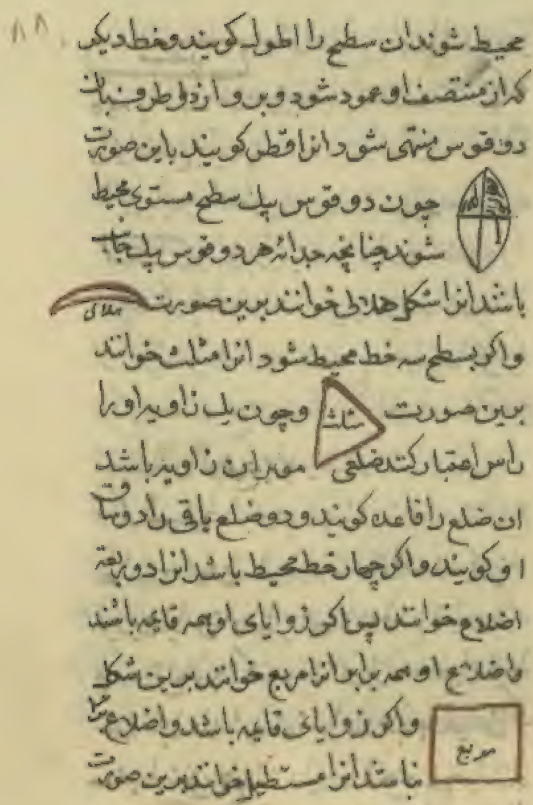 ۸۸
محیط شوند ان سطح را اطول کویند و خط دیکر
که از منتصف او عمود شود و بر و از دو طرف بان
دو قوس منتهی شود انرا قطر کویند باین صورت
چون دو قوس بیک سطح مستوی محیط
شوند چنانچه حدبه هر دو قوس بیک جانب
باشد انرا شکل هلالی خوانند برین صورت
هلالی
واکر بسطح سه خط محیط شود انرا مثلث خوانند
برین صورت مثلث وچون یک زاویه او را
راس اعتبار کنند ضلعی موتر ان زاویه باشد
ان ضلع را قاعده کویند و دو ضلع باقی را دو ساق
او کویند واکر چهار خط محیط باشد انرا ذو اربعة
اضلاع خوانند پس اکر زوایای او همه قایمه باشند
واضلاع او همه برابر انرا مربع خوانند برین شکل
واکر زوایای قایمه باشد واضلاع
مربع
نباشد انرا مستطیل خوانند برین صورت